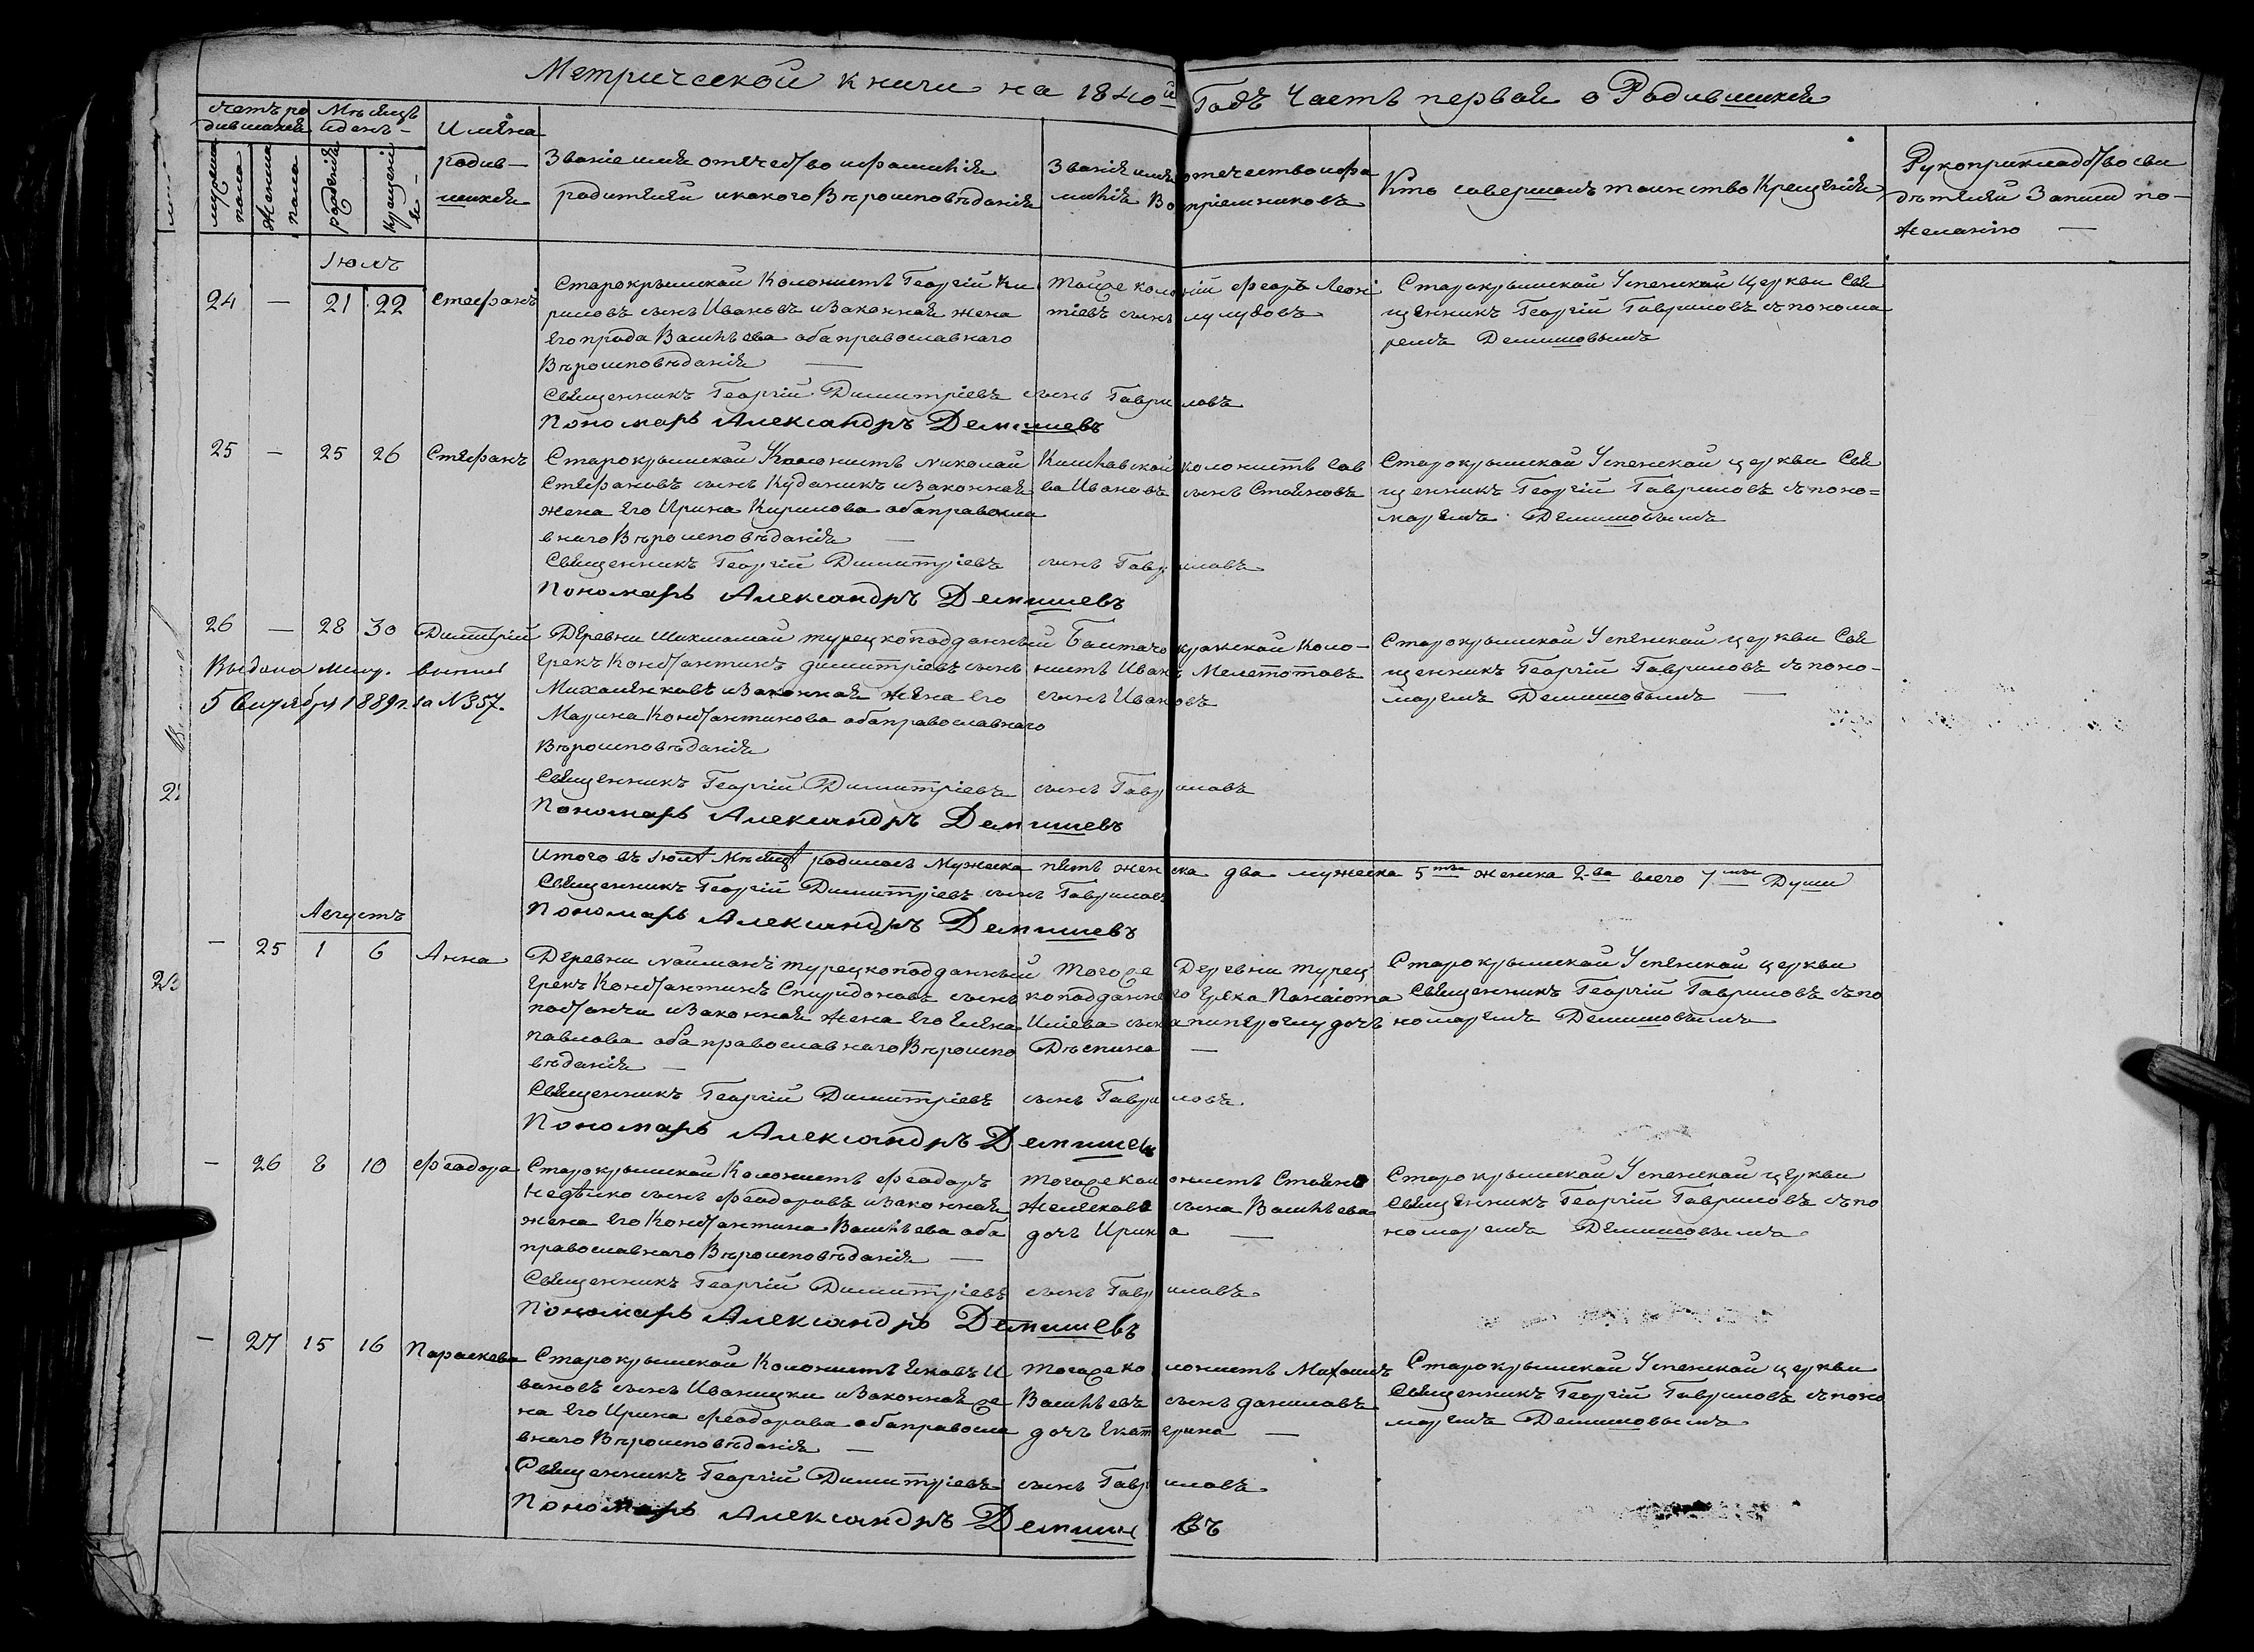 Метрической книги на 1840й Годъ Часть первая о Родившихся
Счетъ родившихся
Мѣсяцъ и день
Имена родившихся
Званіе имя отечество и фамилія родителей и какого Вѣроисповѣданія
Званія имя отечество и фамилія Воспріемниковъ
Кто совершалъ таинство Крещенія
Рукоприкладство свидѣтелей Записи по желанію
мужеска пола
женска пола
рожденія
крещенія
Іюль
24 — 21 22 Стефанъ
Старокрымской Колонистъ Георгій Ки
риловъ сынъ Ивановъ и Законная жена
Его Васильева оба православнаго
Вѣроисповѣданія —
Тойже колоній Феодръ Леон
тіевъ сынъ
Старокрымской Успенской Церкви Свя
щенникъ Георгій Гавриловъ съ понома
ремъ Демишовымъ
Священникъ Георгій Димитріевъ сынъ Гавриловъ
Пономарь Александръ Демишевъ
25 — 25 26 Стефанъ
Старокрымской Колонистъ Николай
Стефановъ сынъ Куданикъ и Законная
жена Его Ирина Кирилова оба правосла
внаго Вѣроисповѣданія —
Кишлавской колонистъ Сав
ва Ивановъ сынъ Стояновъ
Старокрымской Успенской церкви Свя
щенникъ Георгій Гавриловъ съ поно=
маремъ Демишовымъ
Священникъ Георгій Димитріевъ сынъ Гавриловъ
Пономарь Александръ Демишевъ
26 — 28 30 Димитрій
Деревни турецкоподданный
Грекъ Константинъ Димитріевъ сынъ
и Законная жена Его
Марина Константинова оба православнаго
Вѣроисповѣданія
Коло-
нистъ Иванъ
сынъ Ивановъ
Старокрымской Успенской церкви Свя
щенникъ Георгій Гавриловъ съ поно-
маремъ Демишовымъ —
Выдана
5 1889г. за №357.
Священникъ Георгій Димитріевъ сынъ Гавриловъ
Пономарь Александръ Демишевъ
Итого въ Іюлѣ Мѣсяцѣ родилось Мужеска пять женска два мужеска 5ть женска 2ва всего 7мь Души
Священникъ Георгій Димитріевъ сынъ Гавриловъ
Пономарь Александръ Демишевъ
Августъ
— 25 1 6 Анна
Деревни Найманъ турецкоподданный
Грекъ Константинъ Спиридоновъ сынъ
и Законная жена Его Елена
Павлова оба православнаго Вѣроиспо
вѣданія —
Тогоже Деревни турец
коподданнаго Грека Панаіота
Иліева сына дочь
Дѣспина —
Старокрымской Успенской церкви
Священникъ Георгій Гавриловъ съ по
номаремъ Демишовымъ
Священникъ Георгій Димитріевъ сынъ Гавриловъ
Пономарь Александръ Демишевъ
— 26 8 10 Феодора
Старокрымской Колонистъ Феодоръ
Недѣлко сынъ Феодоровъ и Законная
жена Его Константина Васильева оба
православнаго Вѣроисповѣданія —
Тогоже колонистъ Стояно
Желескова сына Васильева
дочь Ирина —
Старокрымской Успенской церкви
Священникъ Георгій Гавриловъ съ по
номаремъ Демишовымъ
Священникъ Георгій Димитріевъ сынъ Гавриловъ
Пономарь Александръ Демишевъ
— 27 15 16 Параскева
Старокрымской Колонистъ Яковъ И
вановъ сынъ Иваницки и Законная же
на Его Ирина Феодорова оба правосла
внаго Вѣроисповѣданія —
Тогоже колонистъ Михаилъ
Васильевъ сынъ Даниловъ
дочь Екатерина —
Старокрымской Успенской церкви
Священникъ Георгій Гавриловъ съ поно
маремъ Демишовымъ
Священникъ Георгій Димитріевъ сынъ Гавриловъ
Пономарь Александръ Демишевъ